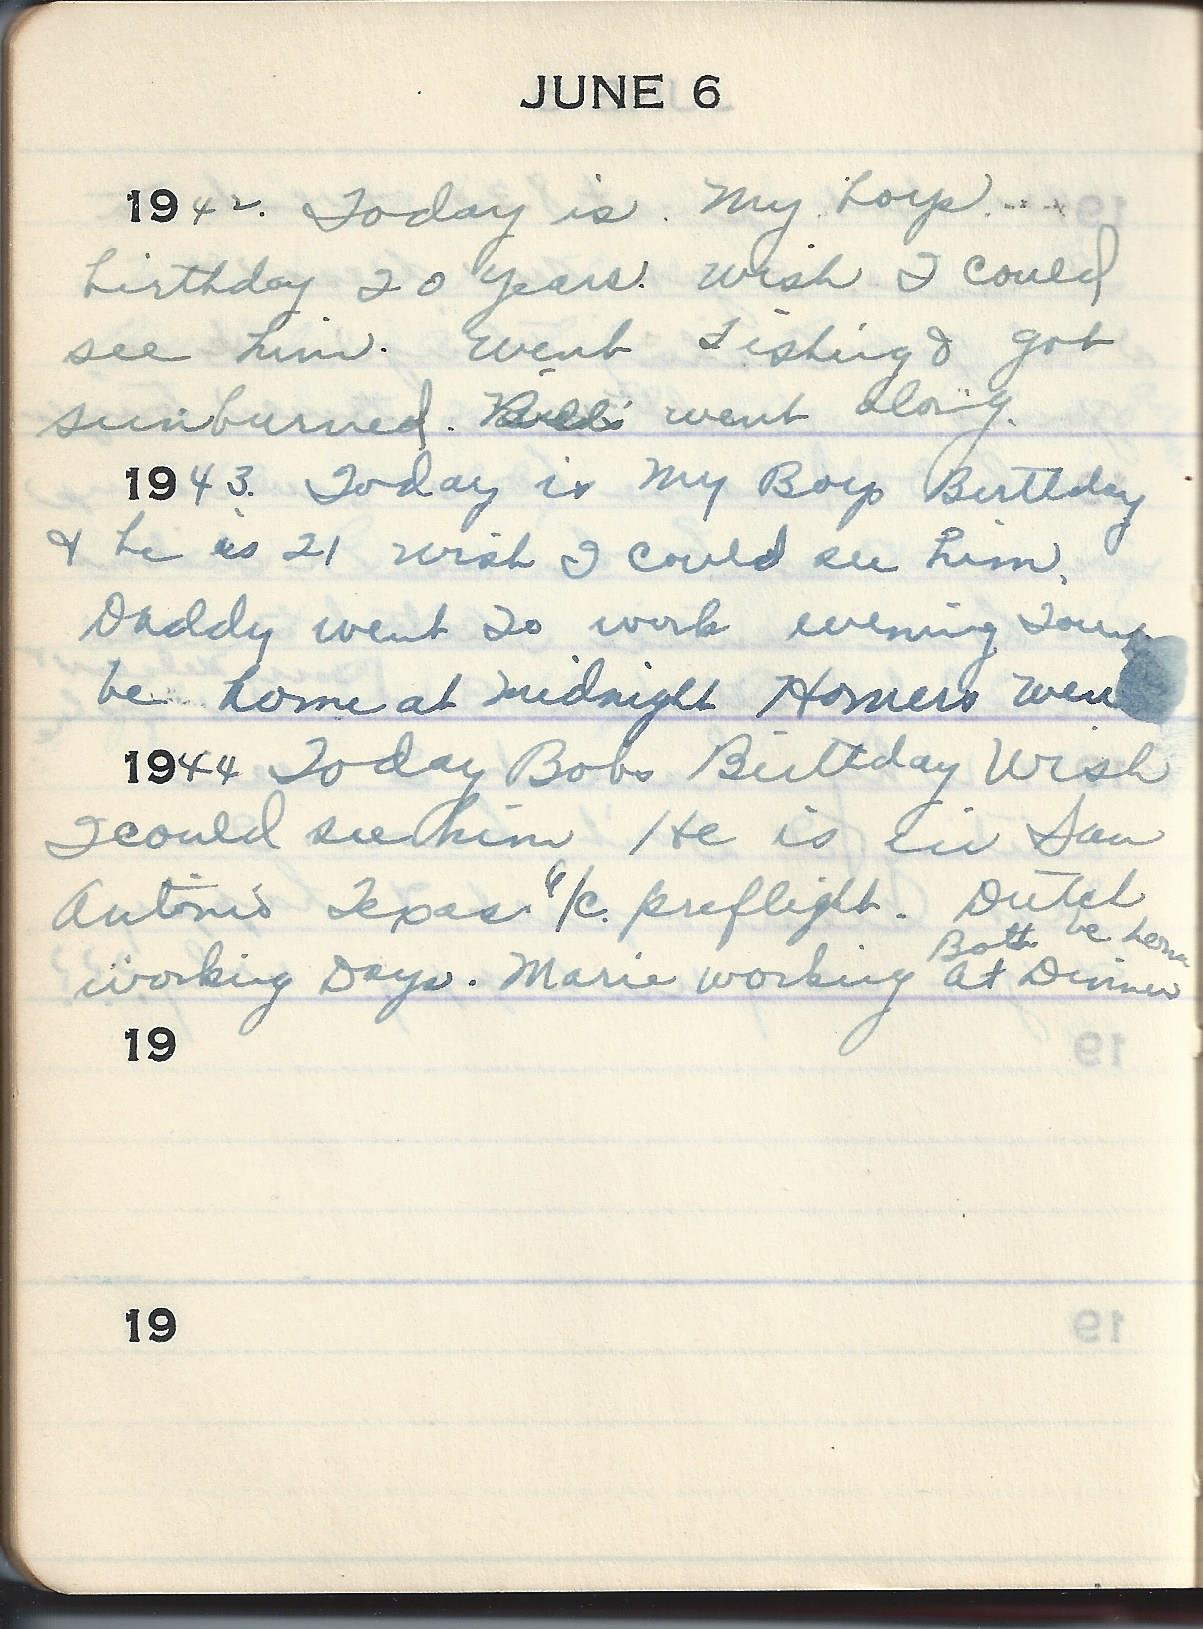 JUNE 6
1942. Today is. My boys
birthday 20 years. Wish I could
see him. Went Fishing & got
sunburned. went along.
1943. Today is My Boys Birthday
& he is 21 wish I could see him.
Daddy went to work evening Tour
be home at midnight Homers were
1944 Today Bobs Birthday Wish
I could see him He is in San
Antonio Texas A/c. preflight. Dutch
working Days. Marie working Both be home
at Dinner
19
19